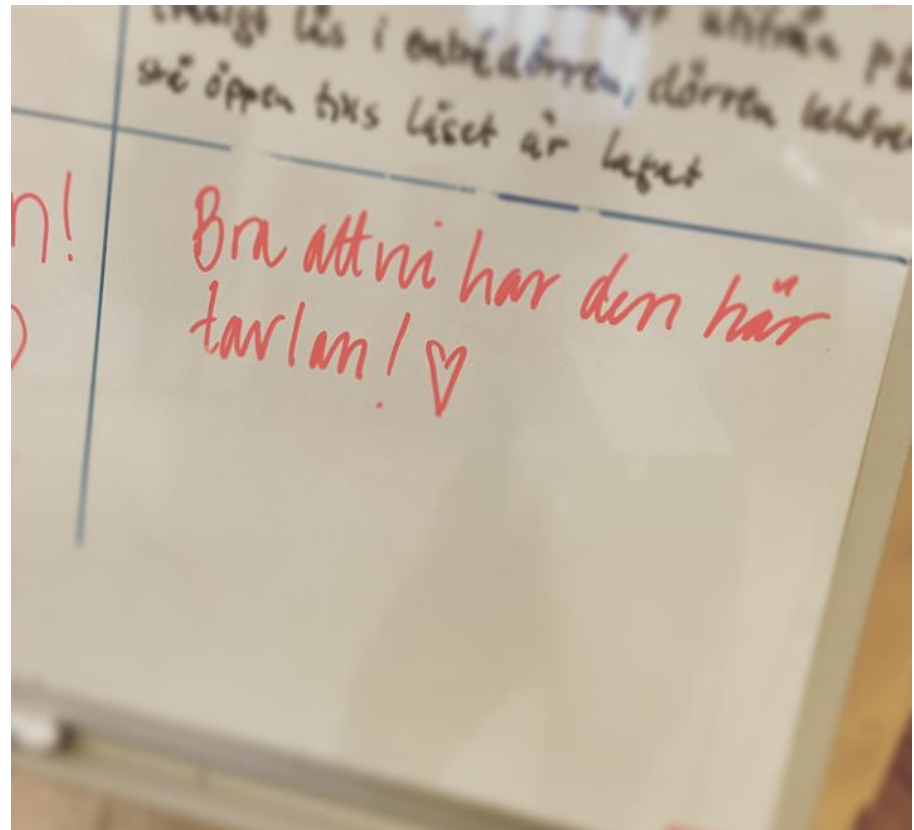 lås i entrédörren, dörren behöver
stå öppen tills låset är lagat
n!
Bra att ni har den här
tavlan! ♡